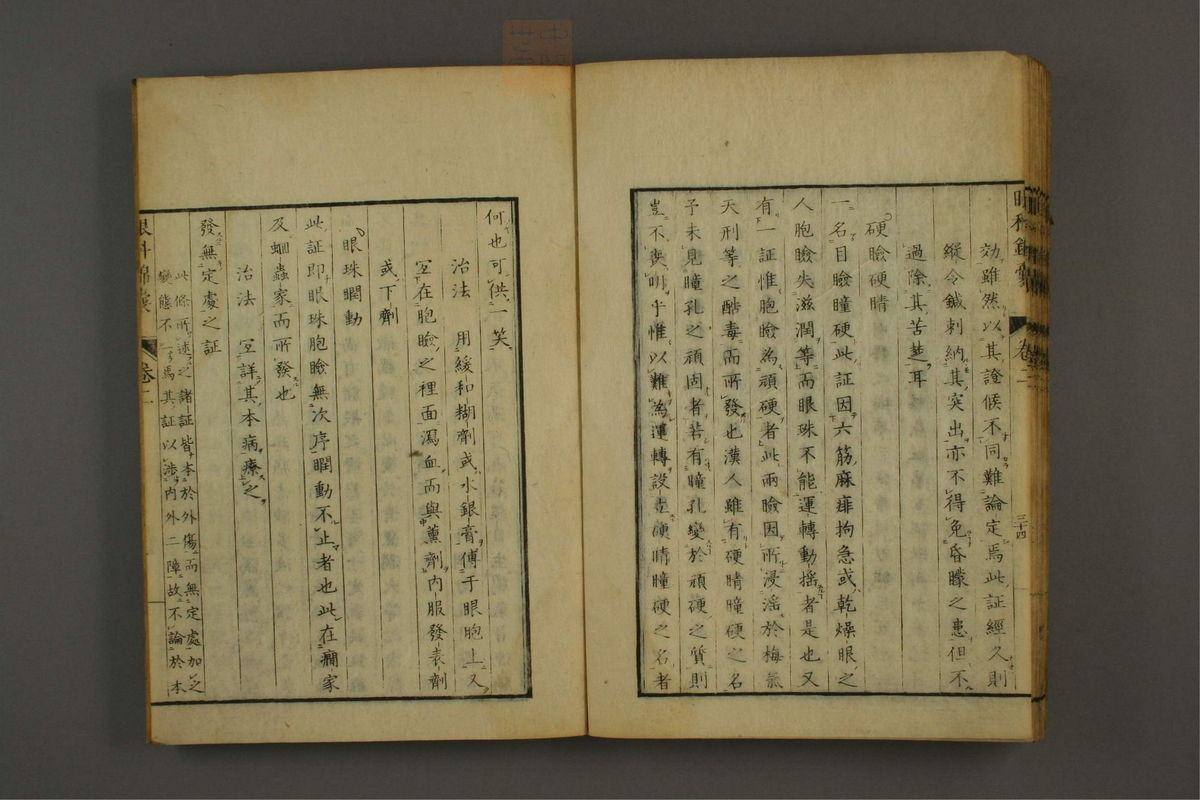 眼科錦囊 卷二 三十四
効雖然以其證候不同難論定焉此証經久則
縱令鍼刺納其突出亦不得免昏朦之患但不
過除其苦楚耳
硬瞼硬睛
一名目瞼瞳硬此証因六筋麻痱拘急或乾燥眼之
人胞瞼失滋潤等而眼珠不能運轉動搖者是也又
有一証惟胞瞼為頑硬者此兩瞼因所浸淫於梅氣
天刑等之酷毒而所發也漢人雖有硬睛瞳硬之名
予未見瞳孔之頑固者若有瞳孔變於頑硬之質則
豈不喪明乎惟以難為運轉設立硬睛瞳硬之名者
何也可供一笑
治法 用緩和糊劑或水銀膏傅于眼胞上又
宜在胞瞼之裡面瀉血而與薰劑內服發表劑
或下劑
眼珠瞤動
此証即眼珠胞瞼無次序瞤動不止者也此在癇家
及蛔蟲家而所發也
治法 宜詳其本病療之
發無定處之証
此條所述之諸証皆本於外傷而無定處加之
變態不一焉其証以涉內外二障故不論於本
眼科錦囊 卷二